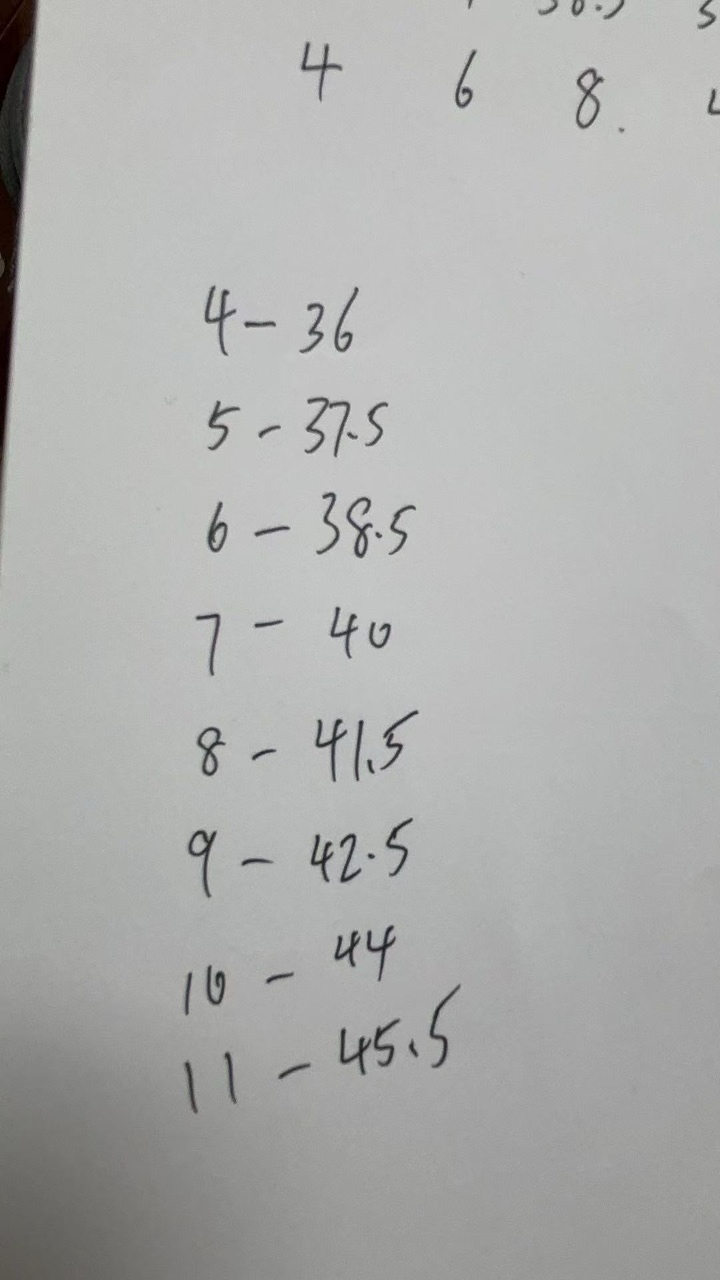 4 6 8.
4 - 36
5 - 37.5
6 - 38.5
7 - 40
8 - 41.5
9 - 42.5
10 - 44
11 - 45.5